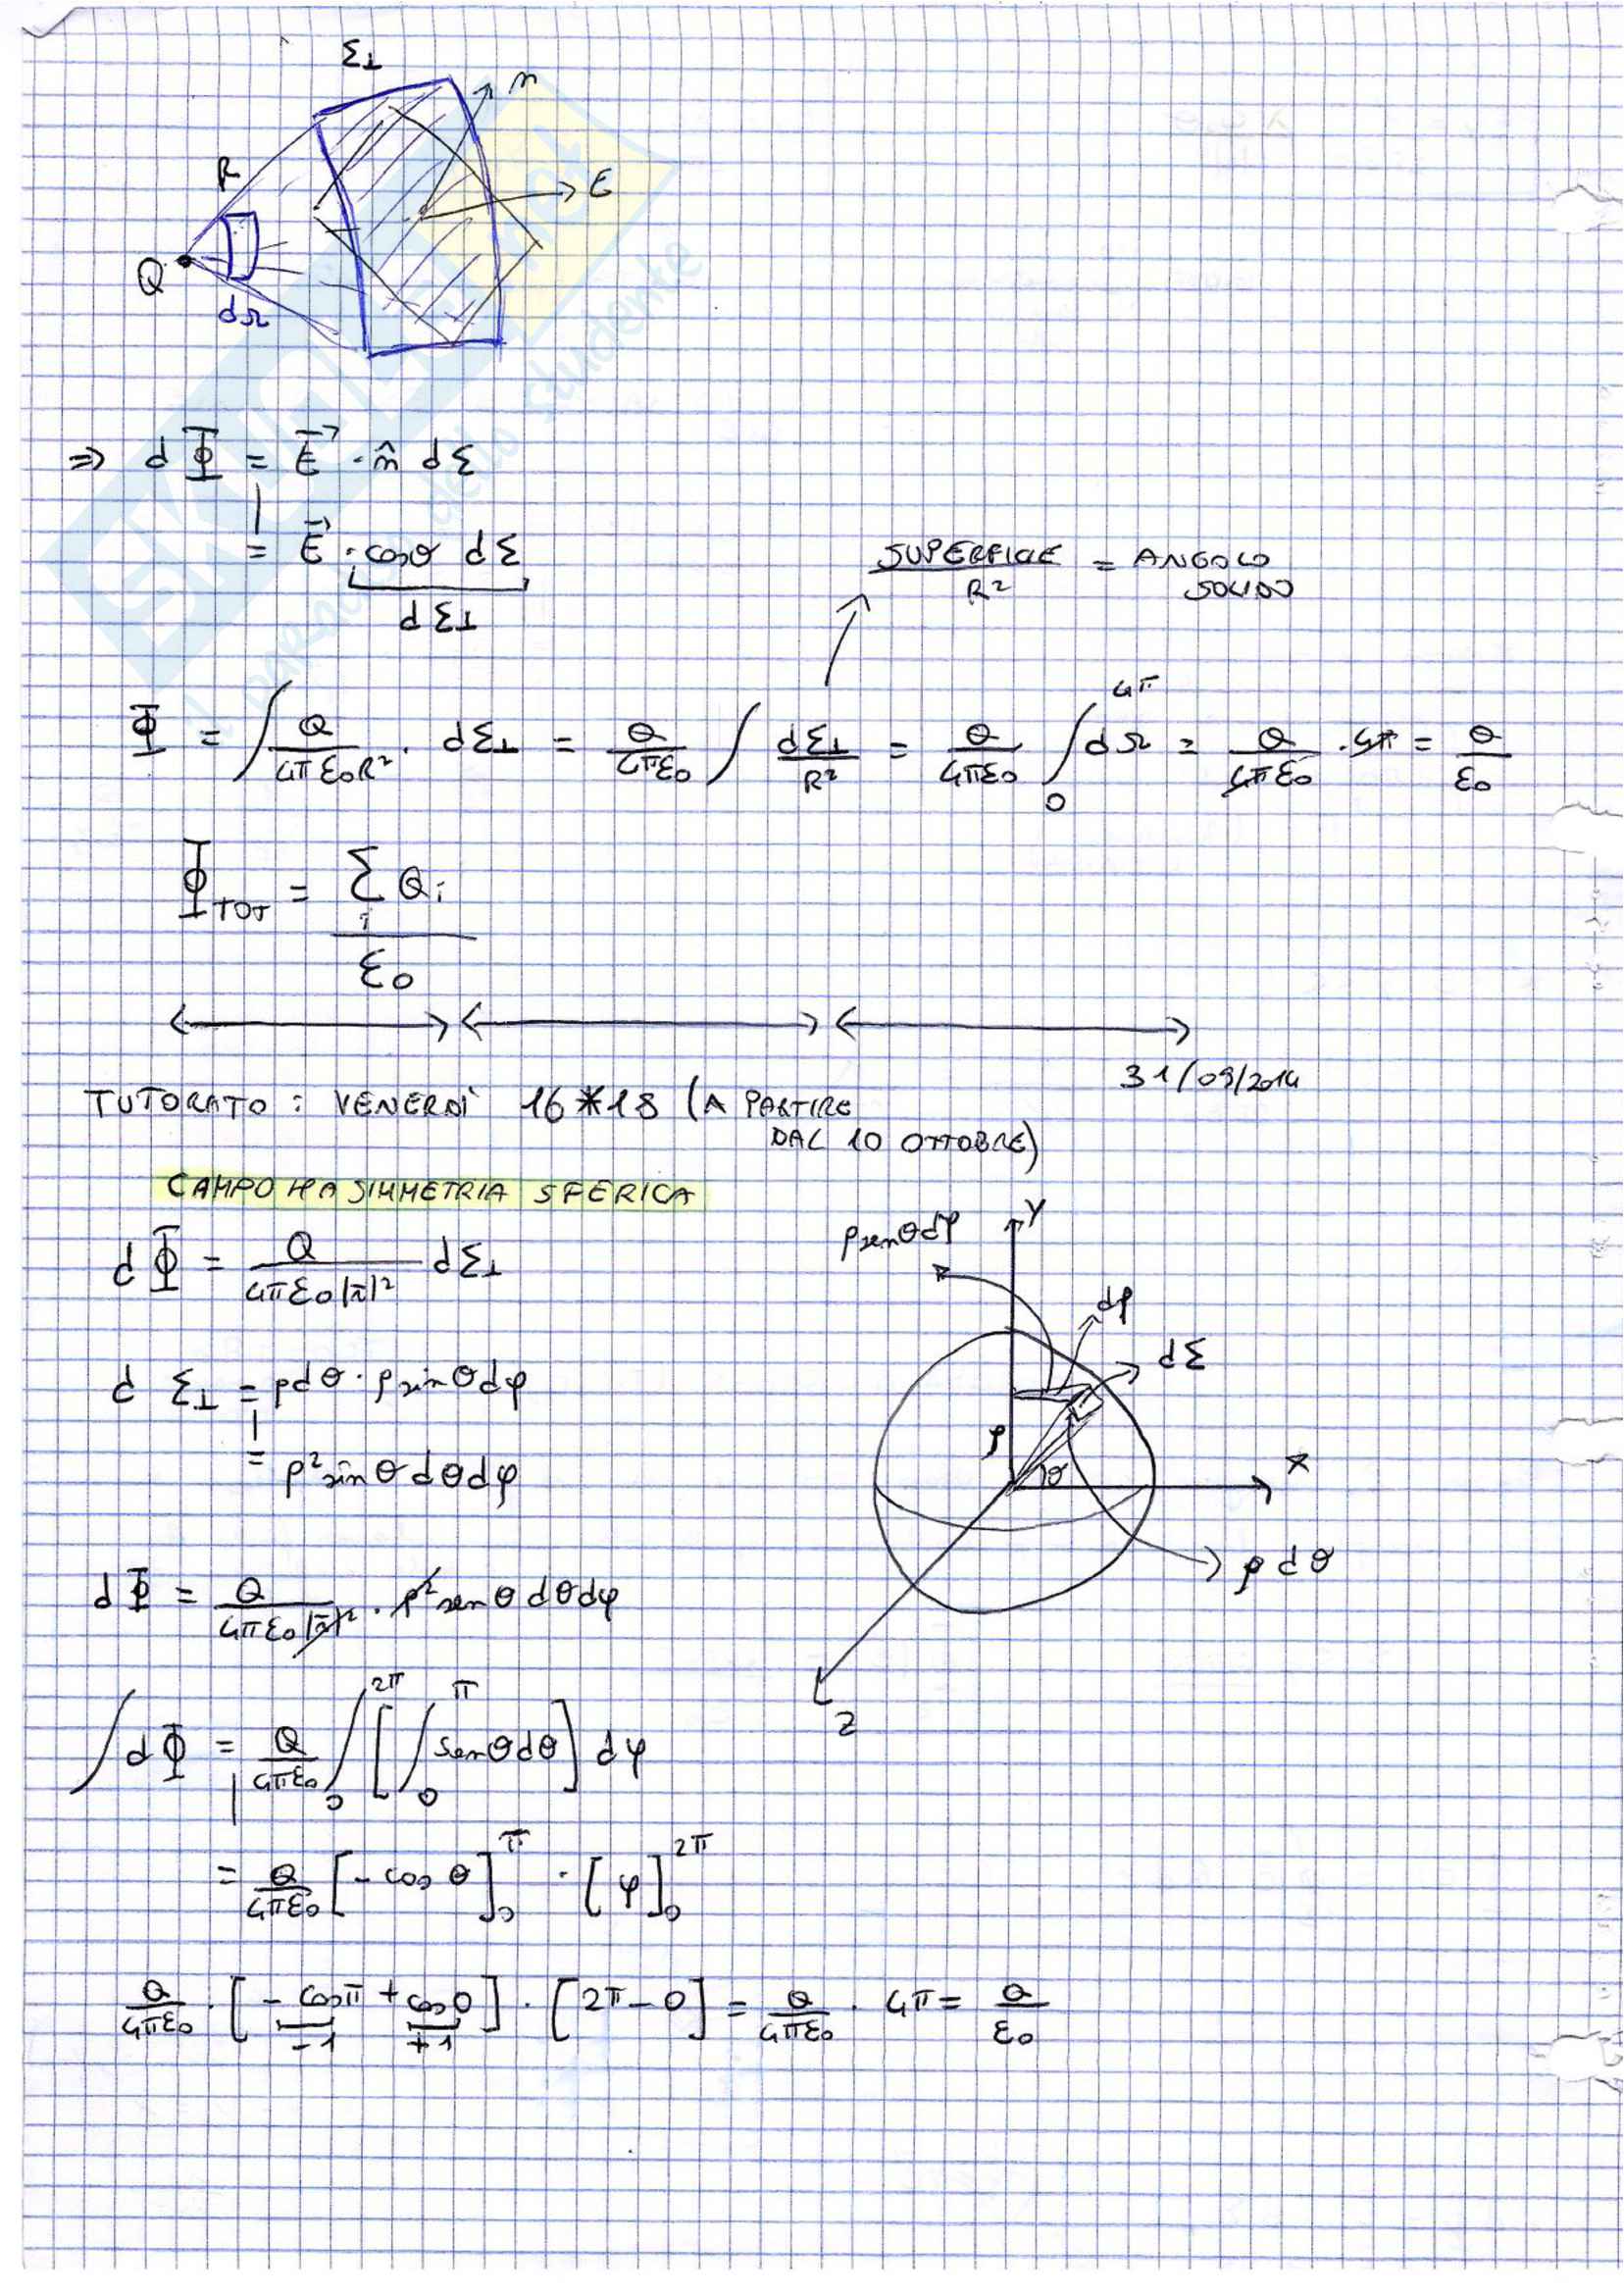 Σ⊥
n
R
E
Q
dΩ
=> dΦ = E⃗ · n̂ dΣ
= E⃗ · cosθ dΣ
dΣ⊥
SUPERFICIE / R² = ANGOLO SOLIDO
Φ = ∫ Q/(4πε₀R²) · dΣ⊥ = Q/(4πε₀) ∫ dΣ⊥/R² = Q/(4πε₀) ∫₀^4π dΩ = Q/(4πε₀) · 4π = Q/ε₀
Φ_TOT = Σᵢ Qᵢ / ε₀
31/09/2014
TUTORATO : VENERDÌ 16*18 (A PARTIRE
DAL 10 OTTOBRE)
CAMPO HA SIMMETRIA SFERICA
dΦ = Q/(4πε₀|r̄|²) dΣ⊥
d Σ⊥ = ρdθ · ρ sin θ dφ
= ρ² sin θ dθ dφ
ρ sen θ dφ
Y
dφ
dΣ
ρ
θ
X
ρ dθ
Z
dΦ = Q/(4πε₀|r̄|²) · ρ² sen θ dθ dφ
∫dΦ = Q/(4πε₀) ∫₀^2π [∫₀^π sen θ dθ] dφ
= Q/(4πε₀) [- cos θ]₀^π · [φ]₀^2π
Q/(4πε₀) · [- cos π + cos 0] · [2π - 0] = Q/(4πε₀) · 4π = Q/ε₀
-1 +1